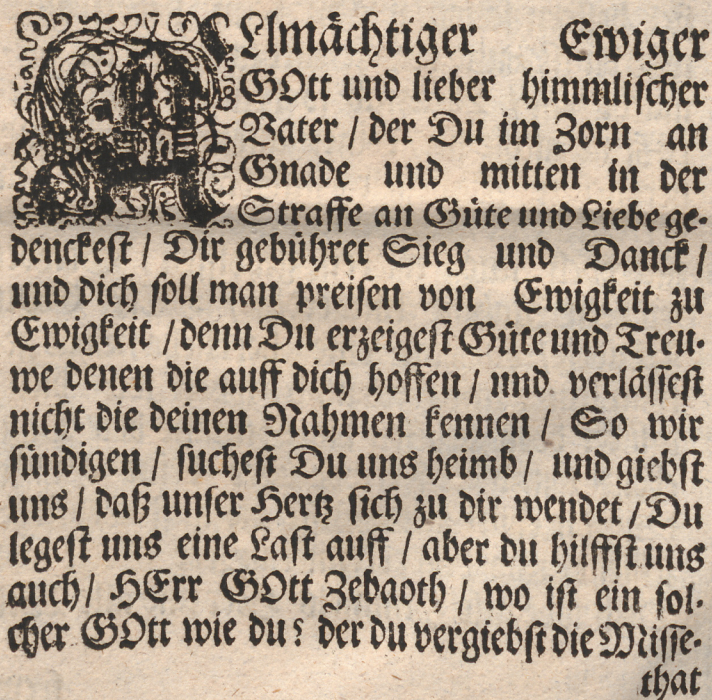 ALlmächtiger Ewiger
GOtt und lieber himmlischer
Vater / der Du im Zorn an
Gnade und mitten in der
Straffe an Güte und Liebe ge-
denckest / Dir gebühret Sieg und Danck /
und dich soll man preisen von Ewigkeit zu
Ewigkeit / denn Du erzeigest Güte und Treu-
we denen die auff dich hoffen / und verlässest
nicht die deinen Nahmen kennen / So wir
sündigen / suchest Du uns heimb / und giebst
uns / daß unser Hertz sich zu dir wendet / Du
legest uns eine Last auff / aber du hilffst uns
auch / HErr GOtt Zebaoth / wo ist ein sol-
cher GOtt wie du? der du vergiebst die Misse-
that